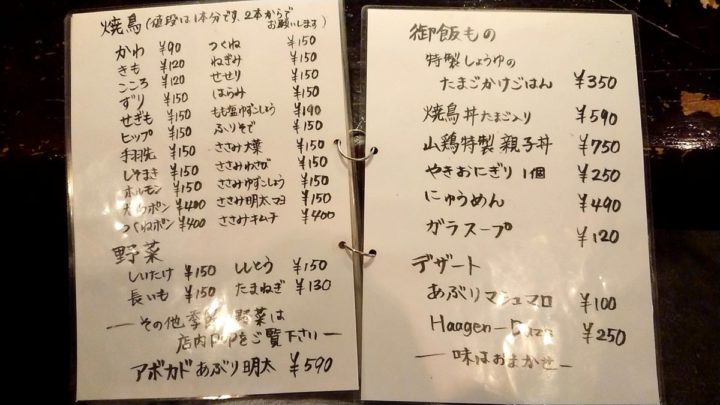 焼鳥 (値段は1本分です、2本からでお願いします)
かわ ¥90
きも ¥120
こころ ¥120
ずり ¥150
せぎも ¥150
ヒップ ¥150
手羽先 ¥150
しそまき ¥150
ホルモン ¥150
ポン ¥400
つくねポン ¥400
つくね ¥150
ねぎみ ¥150
せせり ¥150
はらみ ¥150
もも塩ゆずこしょう ¥190
ふりそで ¥150
ささみ大葉 ¥150
ささみわさび ¥150
ささみゆずこしょう ¥150
ささみ明太マヨ ¥150
ささみキムチ ¥400
野菜
しいたけ ¥150 ししとう ¥150
長いも ¥150 たまねぎ ¥130
ーその他季節 野菜は
店内POPをご覧下さいー
アボカドあぶり明太 ¥590
御飯もの
特製しょうゆの
たまごかけごはん ¥350
焼鳥丼たまご入り ¥590
山鶏特製親子丼 ¥750
やきおにぎり 1個 ¥250
にゅうめん ¥490
ガラスープ ¥120
デザート
あぶりマシュマロ ¥100
Haagen-Dazs ¥250
ー味はおまかせー